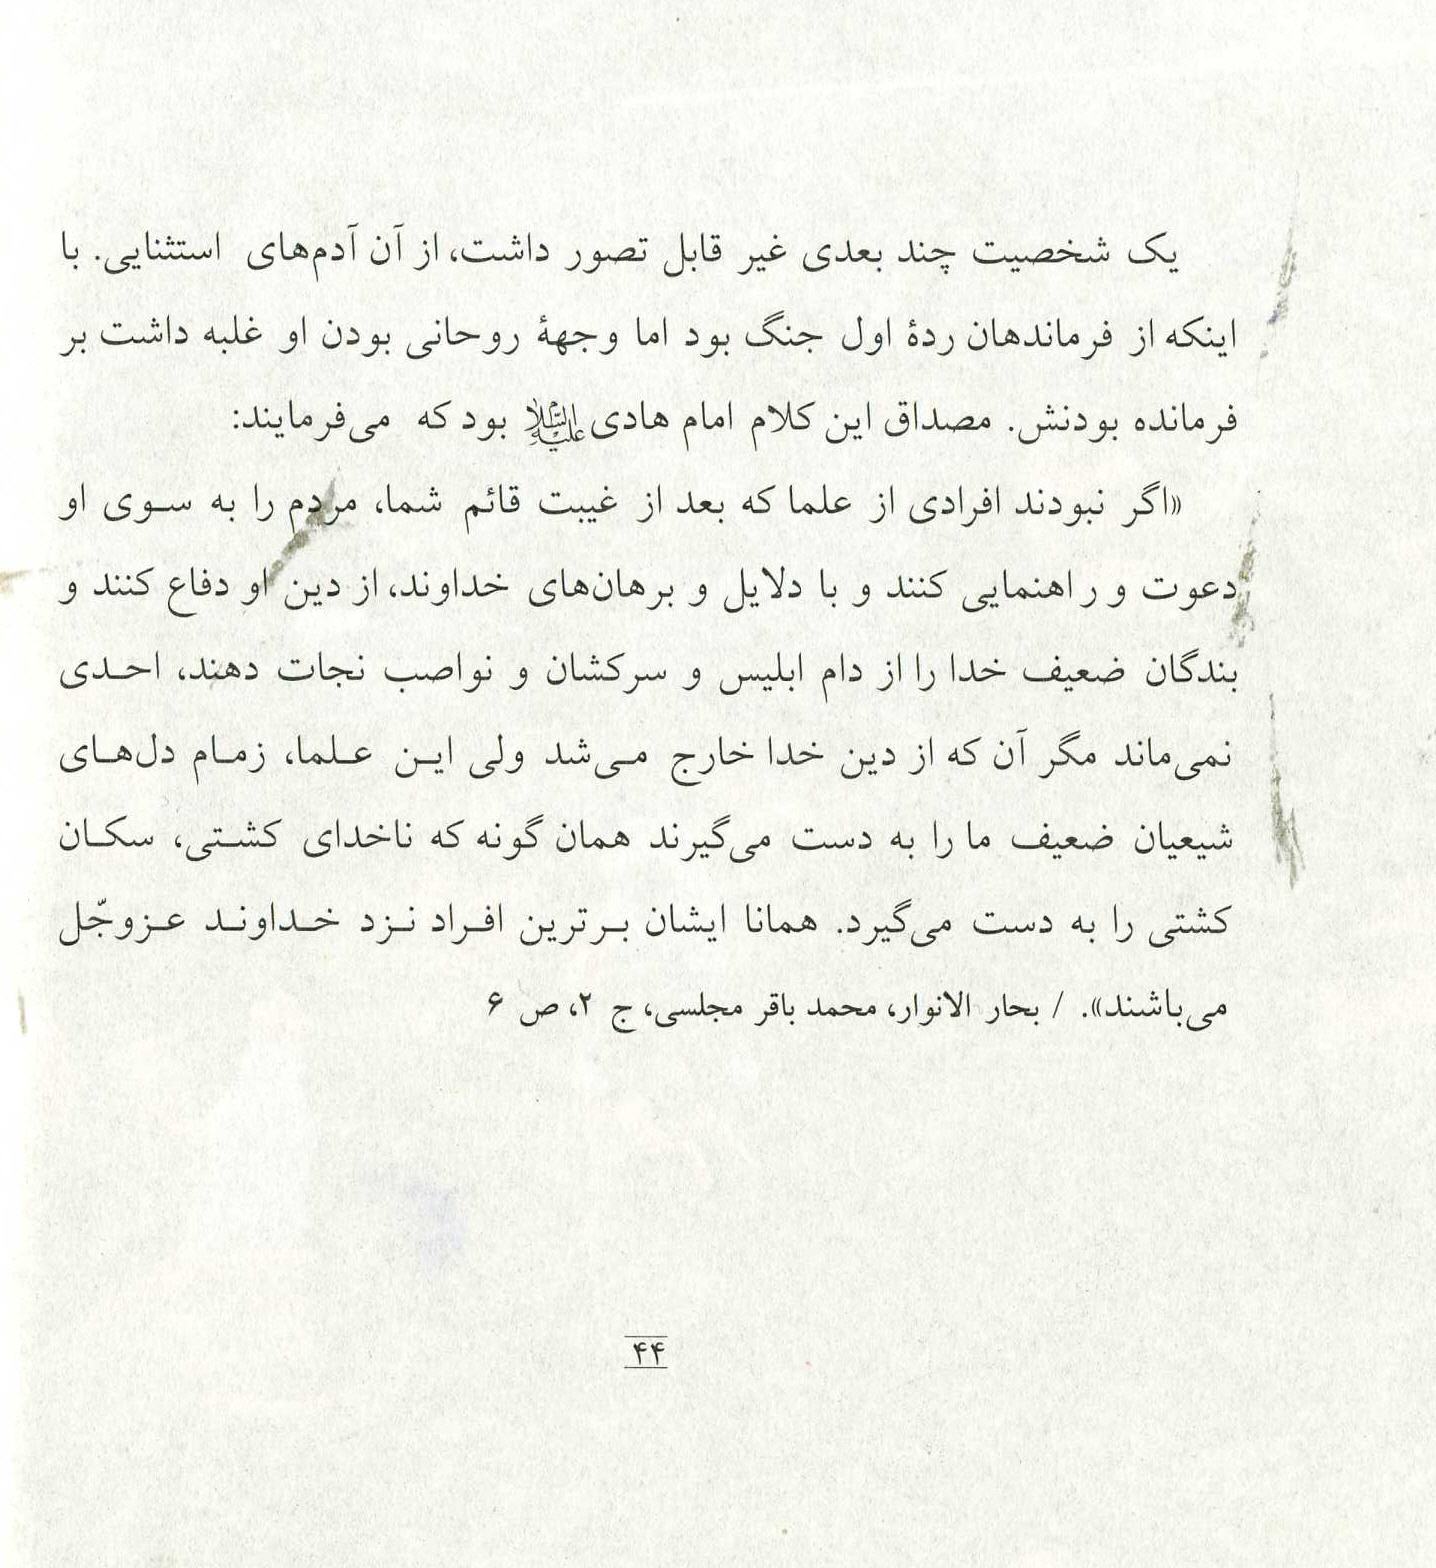 یک شخصیت چند بعدی غیر قابل تصور داشت، از آن آدم‌های استثنایی. با
اینکه از فرماندهان ردهٔ اول جنگ بود اما وجههٔ روحانی بودن او غلبه داشت بر
فرمانده بودنش. مصداق این کلام امام هادی علیه‌السلام بود که می‌فرمایند:
«اگر نبودند افرادی از علما که بعد از غیبت قائم شما، مردم را به سوی او
دعوت و راهنمایی کنند و با دلایل و برهان‌های خداوند، از دین او دفاع کنند و
بندگان ضعیف خدا را از دام ابلیس و سرکشان و نواصب نجات دهند، احدی
نمی‌ماند مگر آن که از دین خدا خارج می‌شد ولی این علما، زمام دل‌های
شیعیان ضعیف ما را به دست می‌گیرند همان گونه که ناخدای کشتی، سکان
کشتی را به دست می‌گیرد. همانا ایشان برترین افراد نزد خداوند عزوجّل
می‌باشند». / بحار الانوار، محمد باقر مجلسی، ج ۲، ص ۶
۴۴